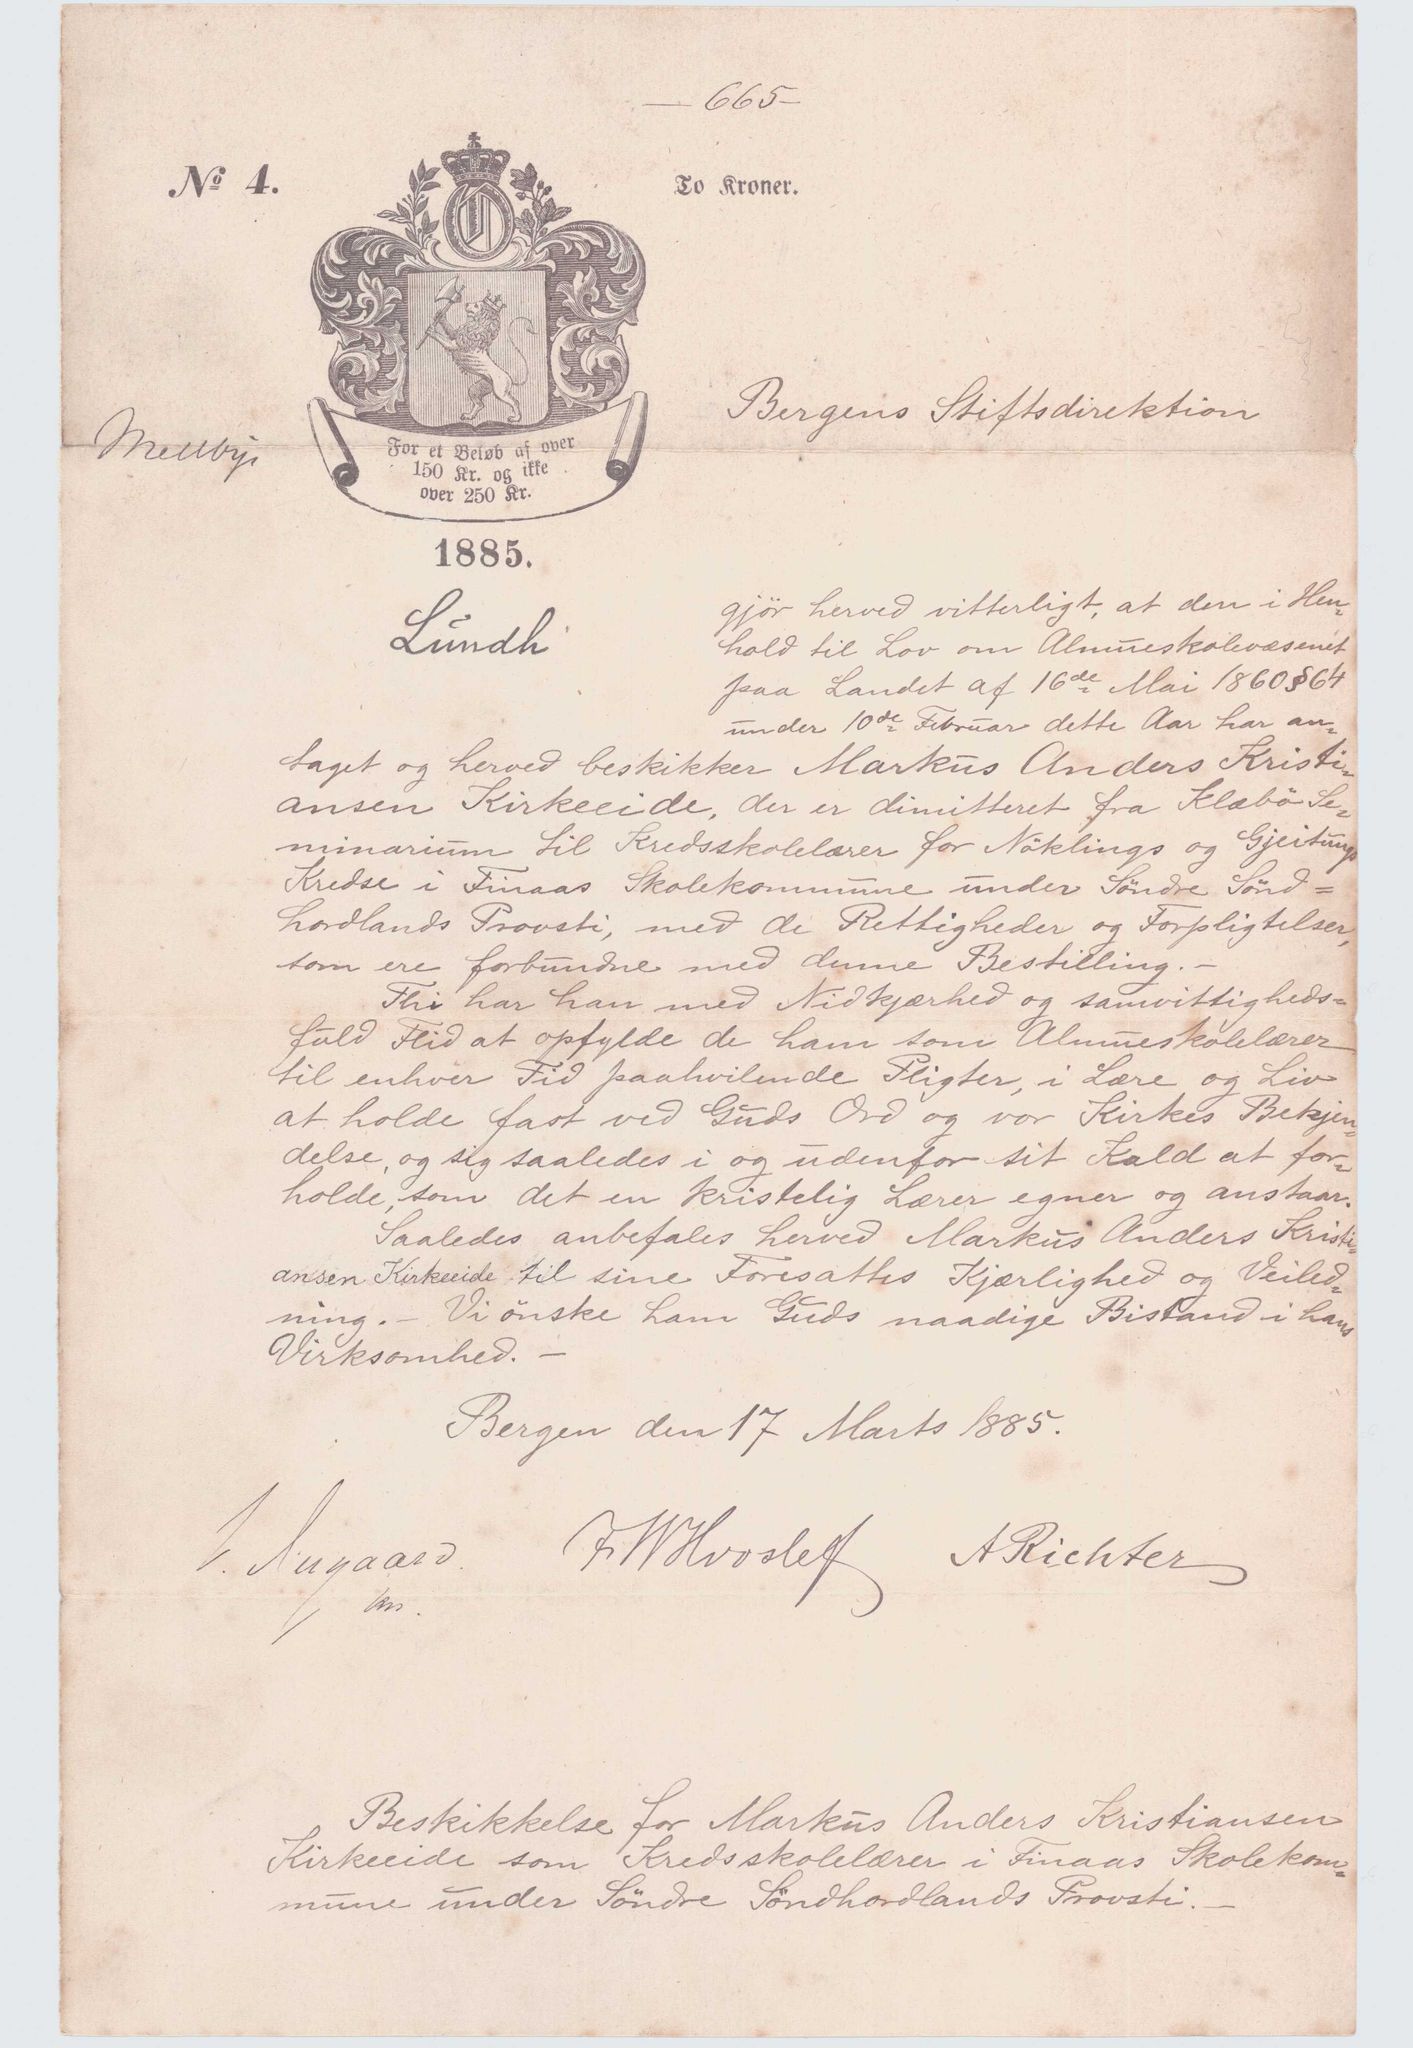 — 665 —
No 4.
To Kroner.
O
Bergens Stiftsdirektion
For et Beløb af over
150 Kr. og ikke
over 250 Kr.
1885.
Lundh
gjør herved vitterligt, at den i Hen-
hold til Lov om Almueskolevæsenet
paa Landet af 16de Mai 1860 § 64
under 10de Februar dette Aar har an-
taget og herved beskikker Markus Anders Kristi-
ansen Kirkeeide, der er dimitteret fra Klæbö Se-
minarium til Kredsskolelærer for Nöklings og Gjeitungs
Kredse i Finaas Skolekommune under Söndre Sönd=
hordlands Provsti, med de Rettigheder og Forpligtelser,
som ere forbundne med denne Bestilling. –
Thi har han med Nidkjærhed og samvittigheds=
fuld Flid at opfylde de ham som Almueskolelærer
til enhver Tid paahvilende Pligter, i Lære og Liv
at holde fast ved Guds Ord og vor Kirkes Bekjen-
delse, og sig saaledes i og udenfor sit Kald at for-
holde, som det en kristelig Lærer egner og anstaar.
Saaledes anbefales herved Markus Anders Kristi-
ansen Kirkeeide til sine Foresattes Kjærlighed og Veiled-
ning. – Vi önske ham Guds naadige Bistand i hans
Virksomhed. –
Bergen den 17 Marts 1885.
FWHvoslef ARichter
Beskikkelse for Markus Anders Kristiansen
Kirkeeide som Kredsskolelærer i Finaas Skolekom-
mune under Söndre Söndhordlands Provsti. –